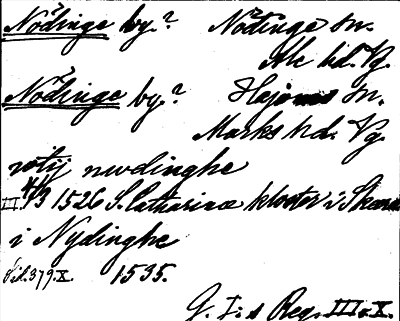 Nödinge by? Nödinge sn.
Ale hd. Vg.
Nödinge by? Hajoms sn.
Marks hd. Vg.
nwdinghe
III. 4/3 1526 S. Catharinæ kloster i Skara
i Nydinghe
Sid. 379. X. 1535.
G. I:s Reg. III o. X.